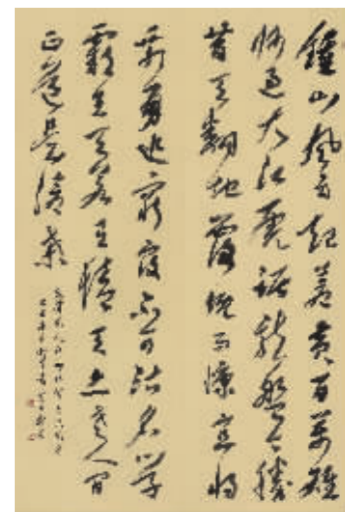 鍾山風雨起蒼黄百萬雄
師過大江虎踞龍盤今勝
昔天翻地覆慨而慷宜將
剩勇追窮寇不可沽名學
霸王天若有情天亦老人間
正道是滄桑